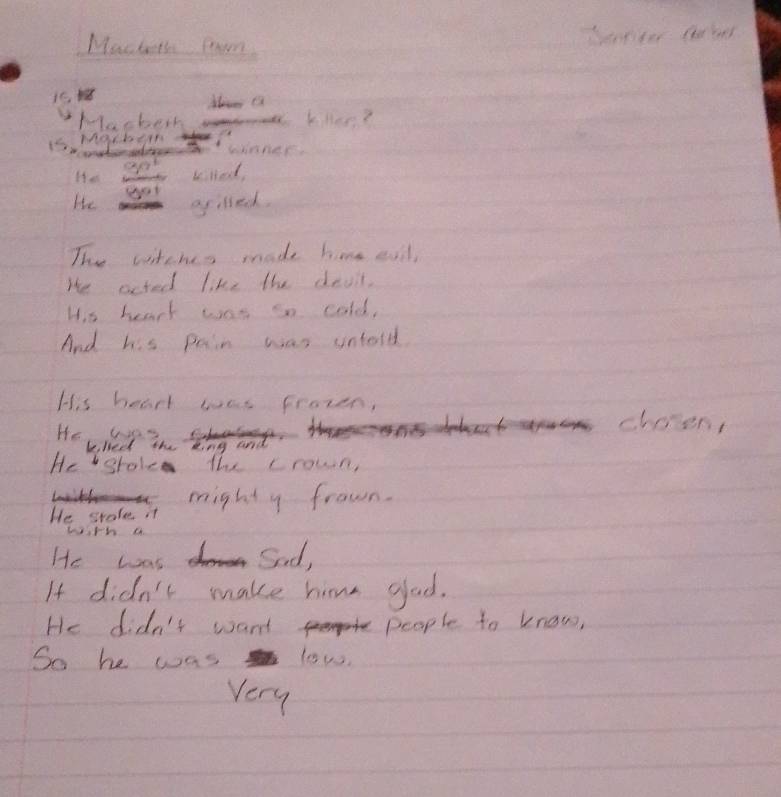 Macbeth Poem
Is
Macbeth a killer?
Is Macbeth a winner.
He got killed,
He got grilled.
The witches made him evil,
He acted like the devil.
His heart was so cold,
And his pain was untold
His heart was frozen,
He was chosen,
killed the king and
He stole the crown,
mighty frown.
He stole it
with a
He was sad,
It didn't make him glad.
He didn't want people to know,
So he was low.
Very